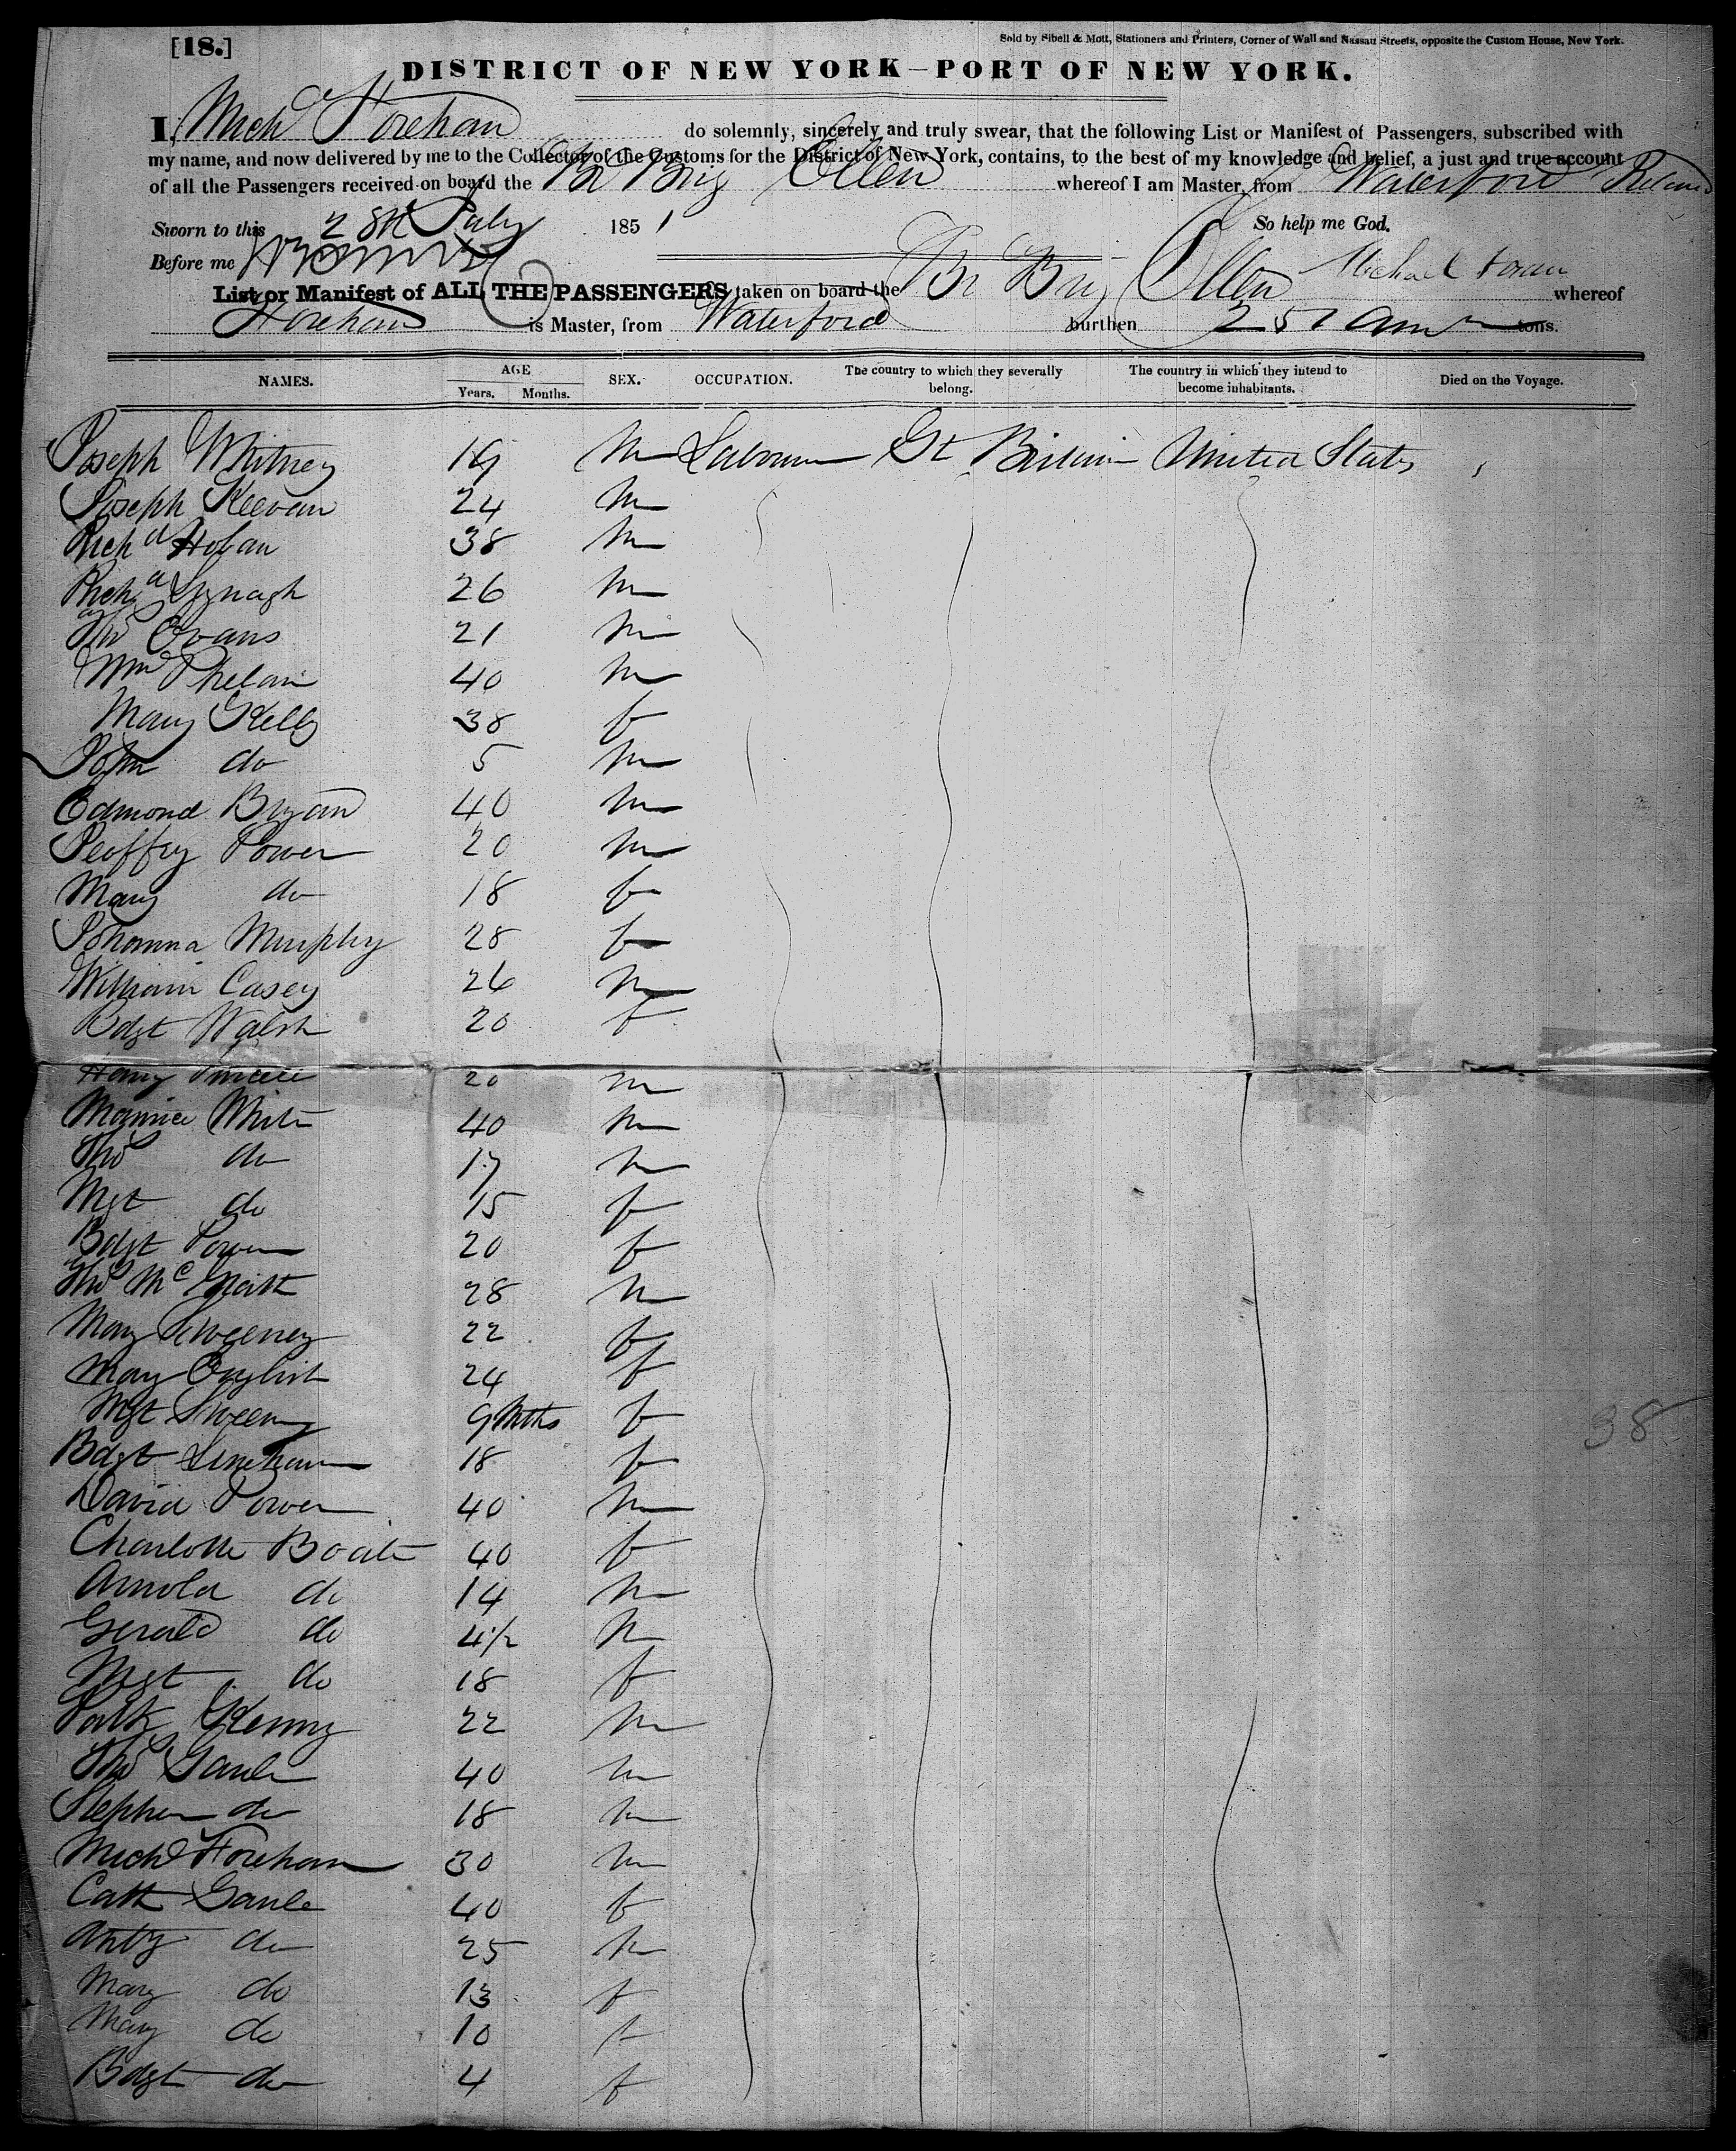 [18.]
Sold by Sibell & Mott, Stationers and Printers, Corner of Wall and Nassau Streets, opposite the Custom House, New York.
DISTRICT OF NEW YORK—PORT OF NEW YORK.
I, Mich Foreham do solemnly, sincerely and truly swear, that the following List or Manifest of Passengers, subscribed with
my name, and now delivered by me to the Collector of the Customs for the District of New York, contains, to the best of my knowledge and belief, a just and true account
of all the Passengers received on board the Br Brig Ellen whereof I am Master, from Waterford
Sworn to this 28th July 1851 So help me God.
Before me Michael Foran
List or Manifest of ALL THE PASSENGERS taken on board the Br Brig Ellen whereof
Foreham is Master, from Waterford burthen tons.
NAMES. AGE Years. Months. SEX. OCCUPATION. The country to which they severally belong. The country in which they intend to become inhabitants. Died on the Voyage.
Joseph Whitney 19 m Labourer Gt Britain United States
Joseph Keevan 24 m
Richd Hoban 38 m
Richd 26 m
Thos Evans 21 m
Wm Phelan 40 m
Mary Kelly 38 f
John do 5 m
Edmond Bryan 40 m
Jeoffry Power 20 m
Mary do 18 f
Johanna Murphy 28 f
William Casey 26 m
Bdgt Walsh 20 f
Henry 20 m
Maurice White 40 m
Thos do 17 m
Mgt do 15 f
Bdgt Power 20 f
Thos McGrath 28 m
Mary Sweeney 22 f
Mary English 24 f
Mgt Sweeny 9 Mths f
Bdgt Linehan 18 f
David Power 40 m
Charlotte Boate 40 f
Arnold do 14 m
Gerald do 4½ m
Mgt do 18 f
Patk Kenny 22 m
Thos Gaule 40 m
Stephen do 18 m
Michl Foreham 30 m
Cath Gaule 40 f
Anty do 25 m
Mary do 13 f
Mary do 10 f
Bdgt do 4 f
38